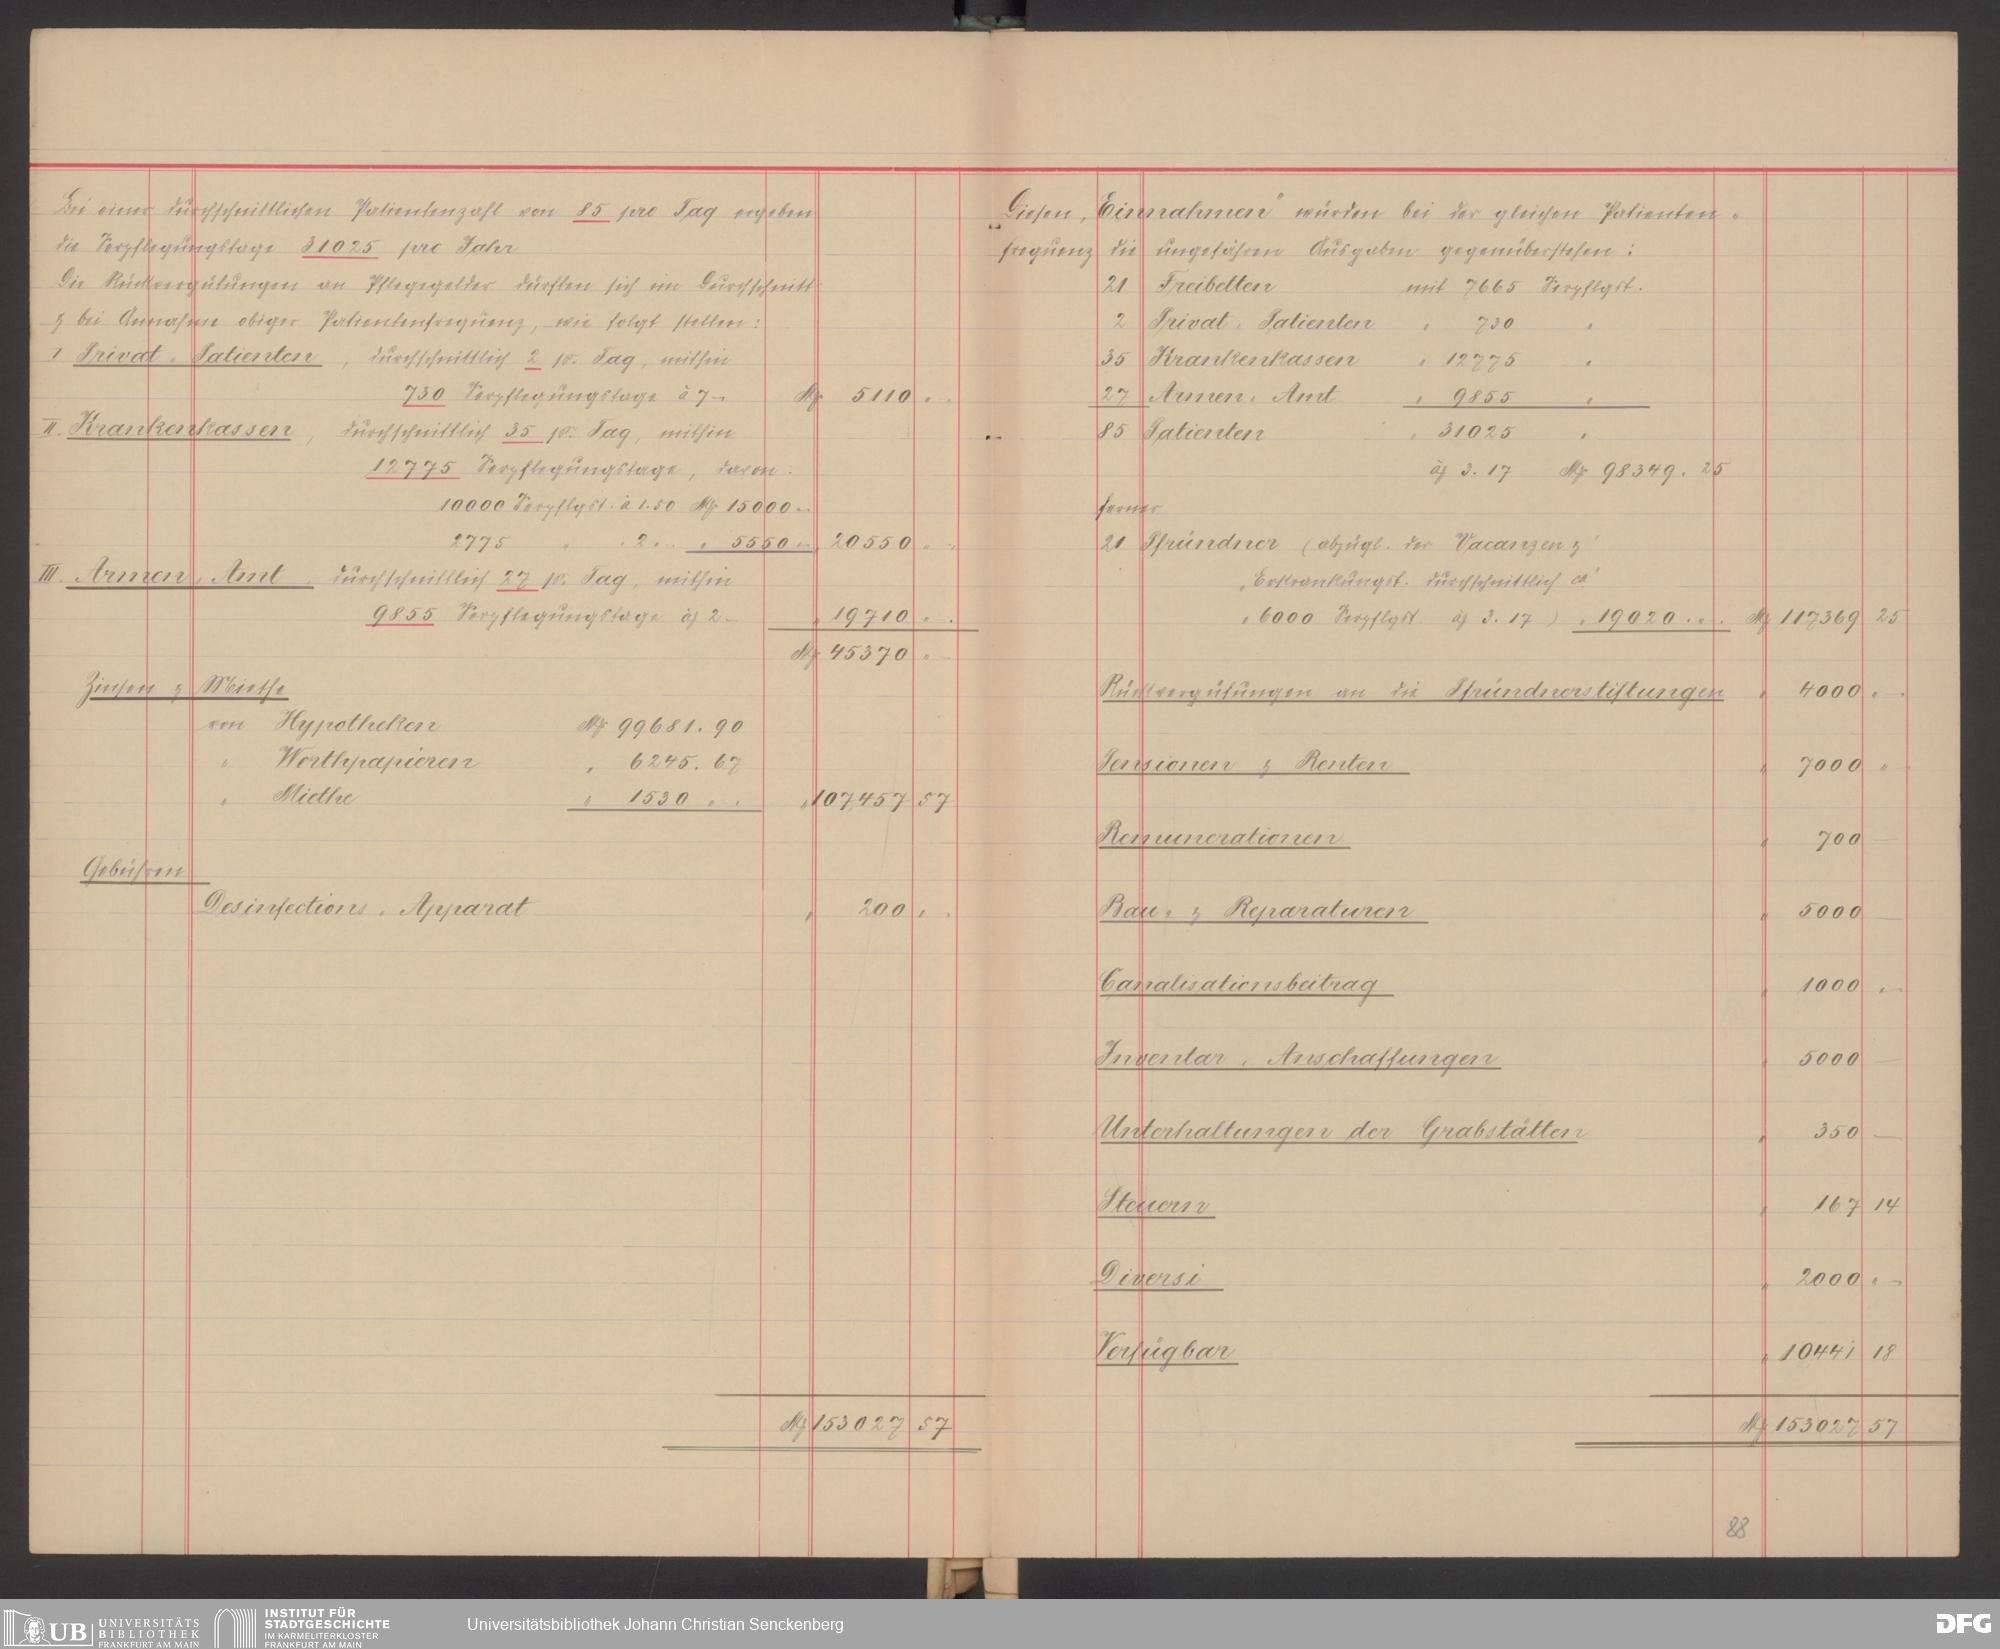 Bei einer durchschnittlichen Patientenzahl von 85 pro Tag ergeben
die Verpflegungstage 31025 pro Jahr
Die Rückvergütungen an Pflegegelder dürften sich im Durchschnitt
& bei Annahme obiger Patientenfrequenz, wie folgt stellen:
I Privat-Patienten, durchschnittlich 2 pr. Tag, mithin
730 Verpflegungstage à 7 – M 5110 . –
II. Krankenkassen, durchschnittlich 35 pr. Tag, mithin
12775 Verpflegungstage, davon:
10000 Verpflgst. à 1.50 M 15000 . –
2775 " " 2 . – " 5550 . – " 20550 . –
III. Armen-Amt. durchschnittlich 27 pr. Tag, mithin
9855 Verpflegungstage à 2 – " 19710 . –
M 45370 . –
Zinsen & Miethe
von Hypotheken M 99681.90
" Werthpapieren " 6245.67
" Miethe " 1530 . – " 107,457 57
Gebühren
Desinfections-Apparat " 200 . –
M 153027 57
Diesen „Einnahmen" würden bei der gleichen Patienten-
frequenz die ungefähren Ausgaben gegenüberstehen:
21 Freibetten mit 7665 Verpflgst.
2 Privat-Patienten " 730 "
35 Krankenkassen " 12775 "
27 Armen-Amt " 9855 "
85 Patienten " 31025 "
à 3.17 M 98349.25
ferner
21 Pfründner (abzügl. der Vacanzen &
Erkrankungst. durchschnittlich ca
6000 Verpflgst à 3.17) " 19020 . – M 117369 25
Rückvergütungen an die Pfründnerstiftungen " 4000 . –
Pensionen & Renten " 7000 . –
Remunerationen " 700 –
Bau- & Reparaturen " 5000 –
Canalisationsbeitrag " 1000 . –
Inventar-Anschaffungen " 5000 –
Unterhaltungen der Grabstätten " 350 –
Steuern " 167 14
Diversi " 2000 . –
Verfügbar " 10441 18
M 153027 57
88
UB UNIVERSITÄTS
BIBLIOTHEK
FRANKFURT AM MAIN
INSTITUT FÜR
STADTGESCHICHTE
IM KARMELITERKLOSTER
FRANKFURT AM MAIN
Universitätsbibliothek Johann Christian Senckenberg
DFG